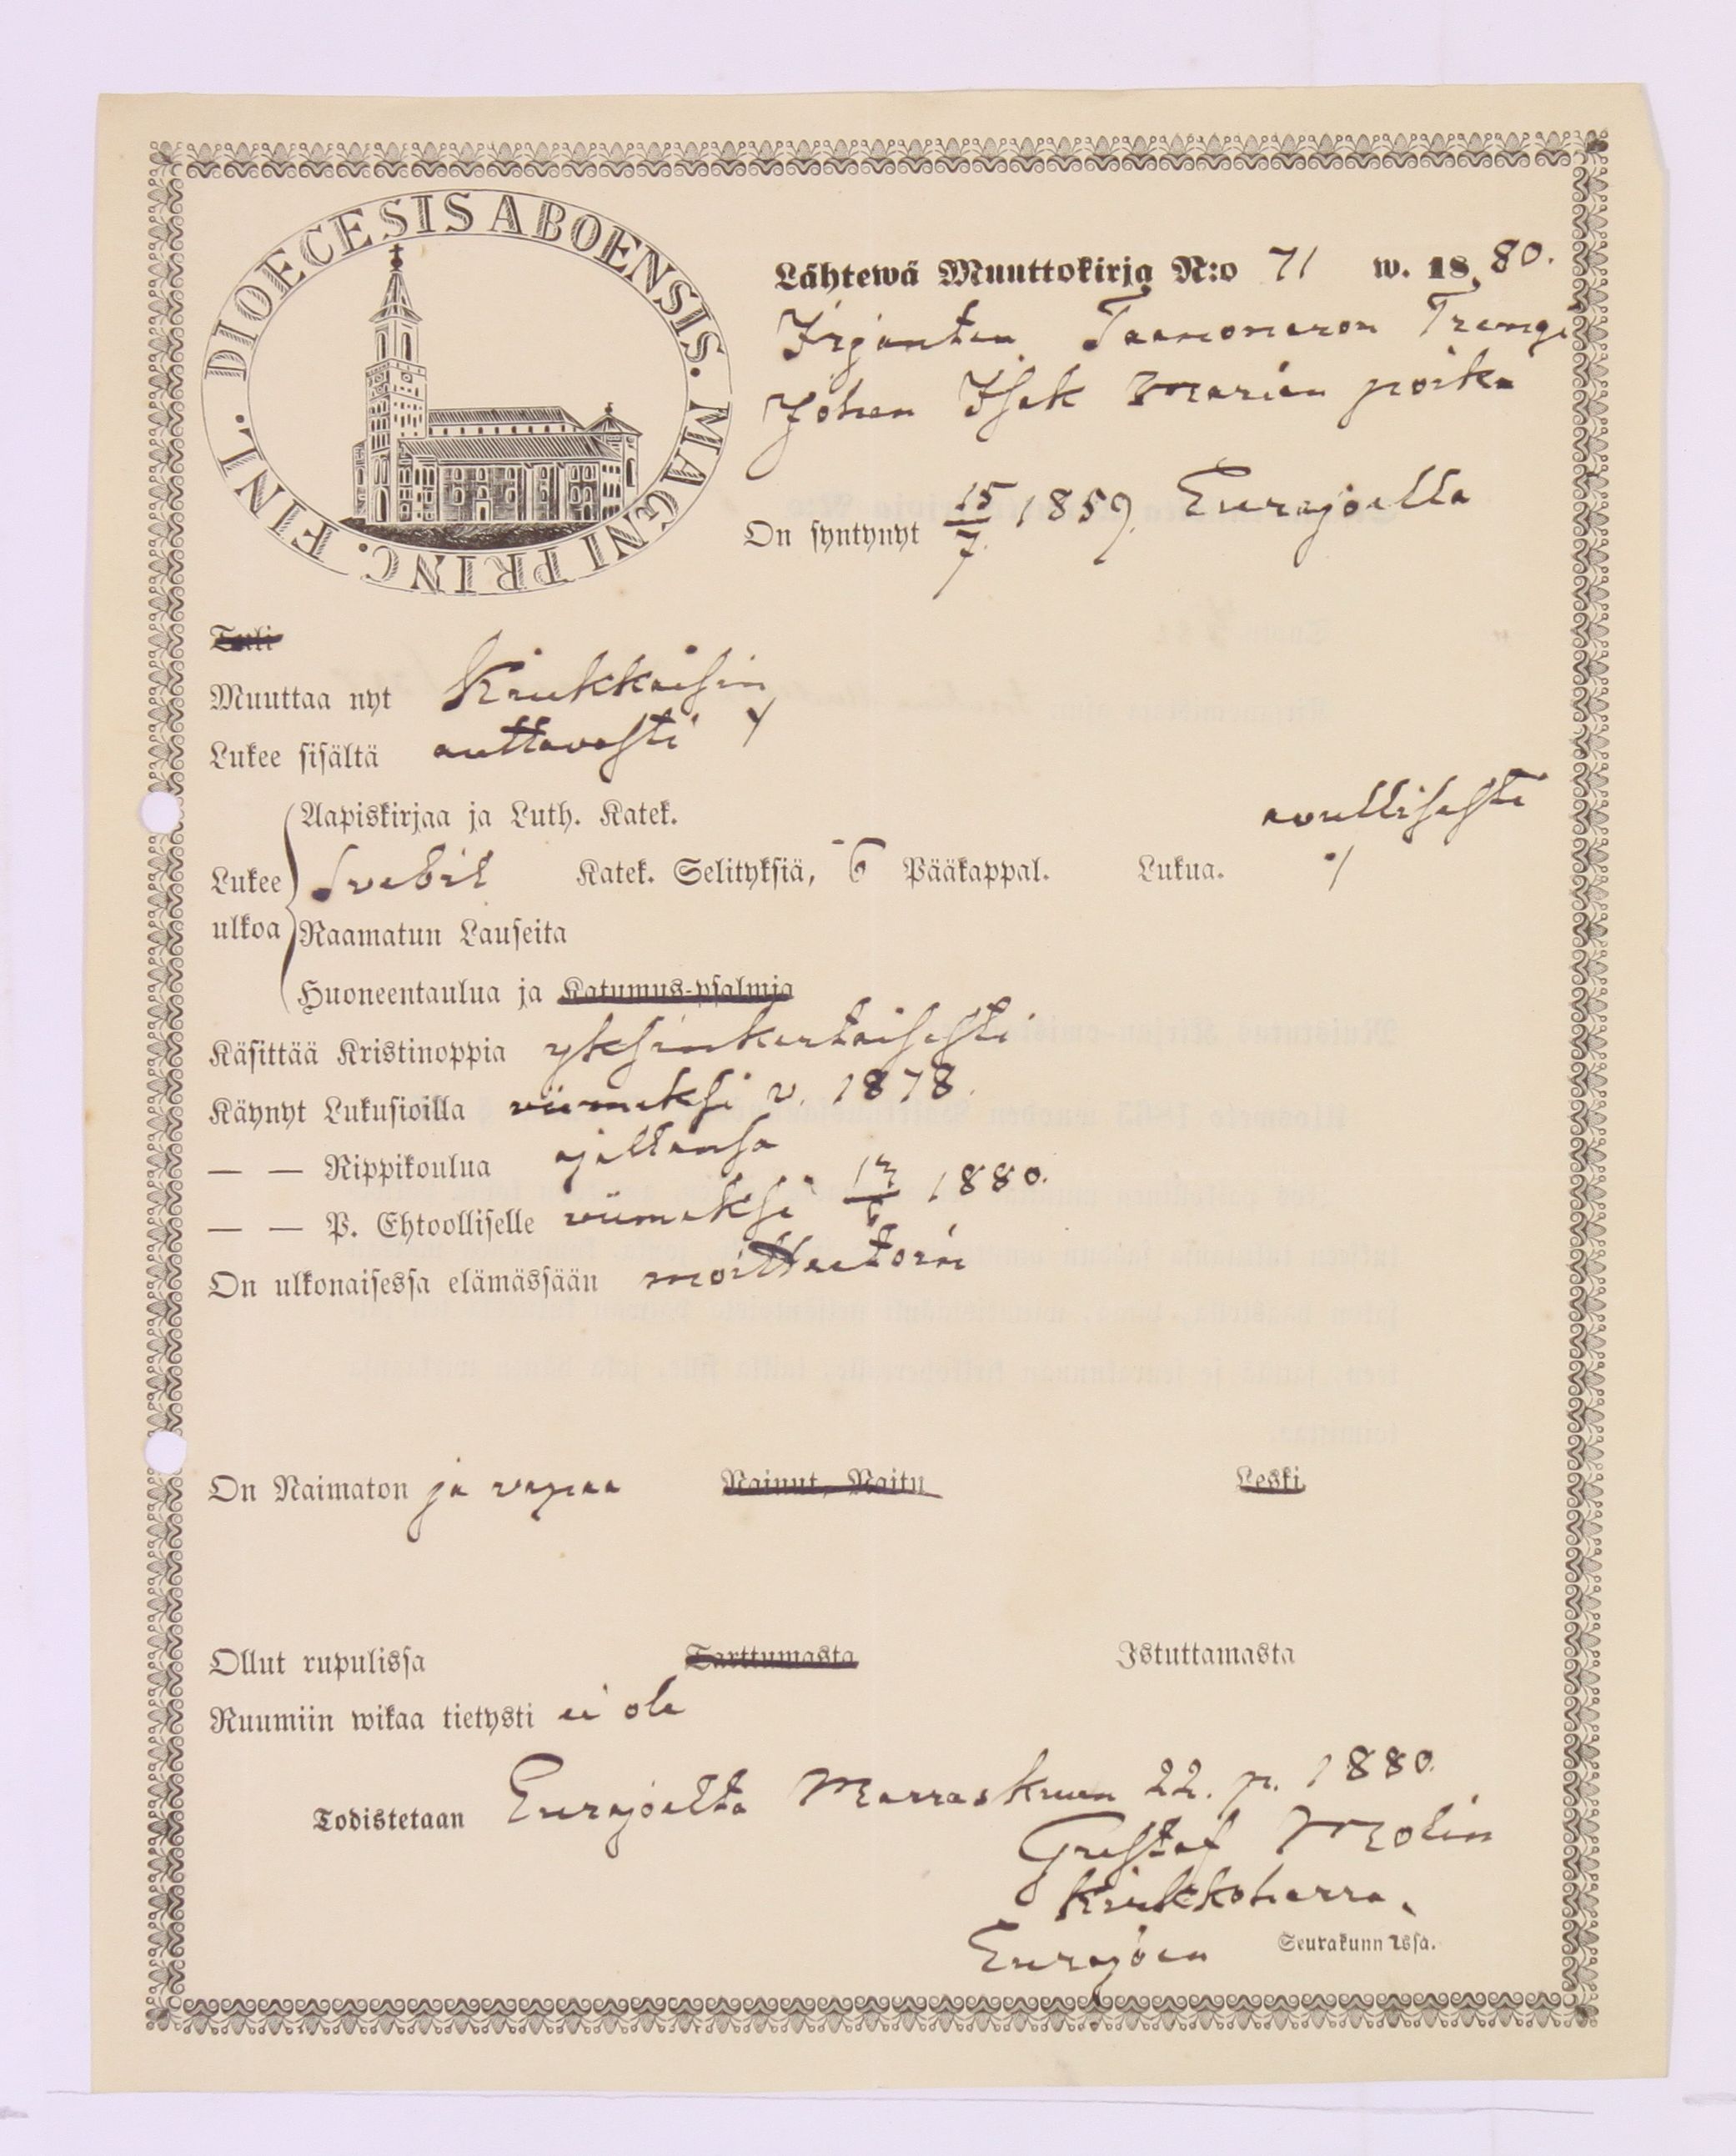 DIOECESIS ABOENSIS. MAGNI PRINC. FINL.
Lähtewä Muuttokirja N:o 71 w. 1880.
Irjanten Taamomaron Trengi
Johan Isak Marian poika
On syntynyt 15/7. 1859. Eurajoella
Tuli
Muuttaa nyt Kiukkaisiin
Lukee sisältä auttavasti
Aapiskirjaa ja Luth. Katek. avullisesti
Lukee Svebil Katek. Selityksiä, 6 Pääkappal. Lukua. ⁒
ulkoa Raamatun Lauseita
Huoneentaulua ja Katumus-psalmia
Käsittää Kristinoppia yksinkertaisesti
Käynyt Lukusioilla viimeksi v. 1878.
— — Rippikoulua ajallansa
— — P. Ehtoolliselle viimeksi 1880.
On ulkonaisessa elämässään moitteetoin
On Naimaton ja vapaa Nainut, Naitu Leski
Ollut rupulissa Tarttumasta Istuttamasta
Ruumiin wikaa tietysti ei ole
Todistetaan Eurajoelta Marraskuun 22. p. 1880.
Gustaf Molin
Kirkkoherra,
Eurajoen Seurakunnassa.